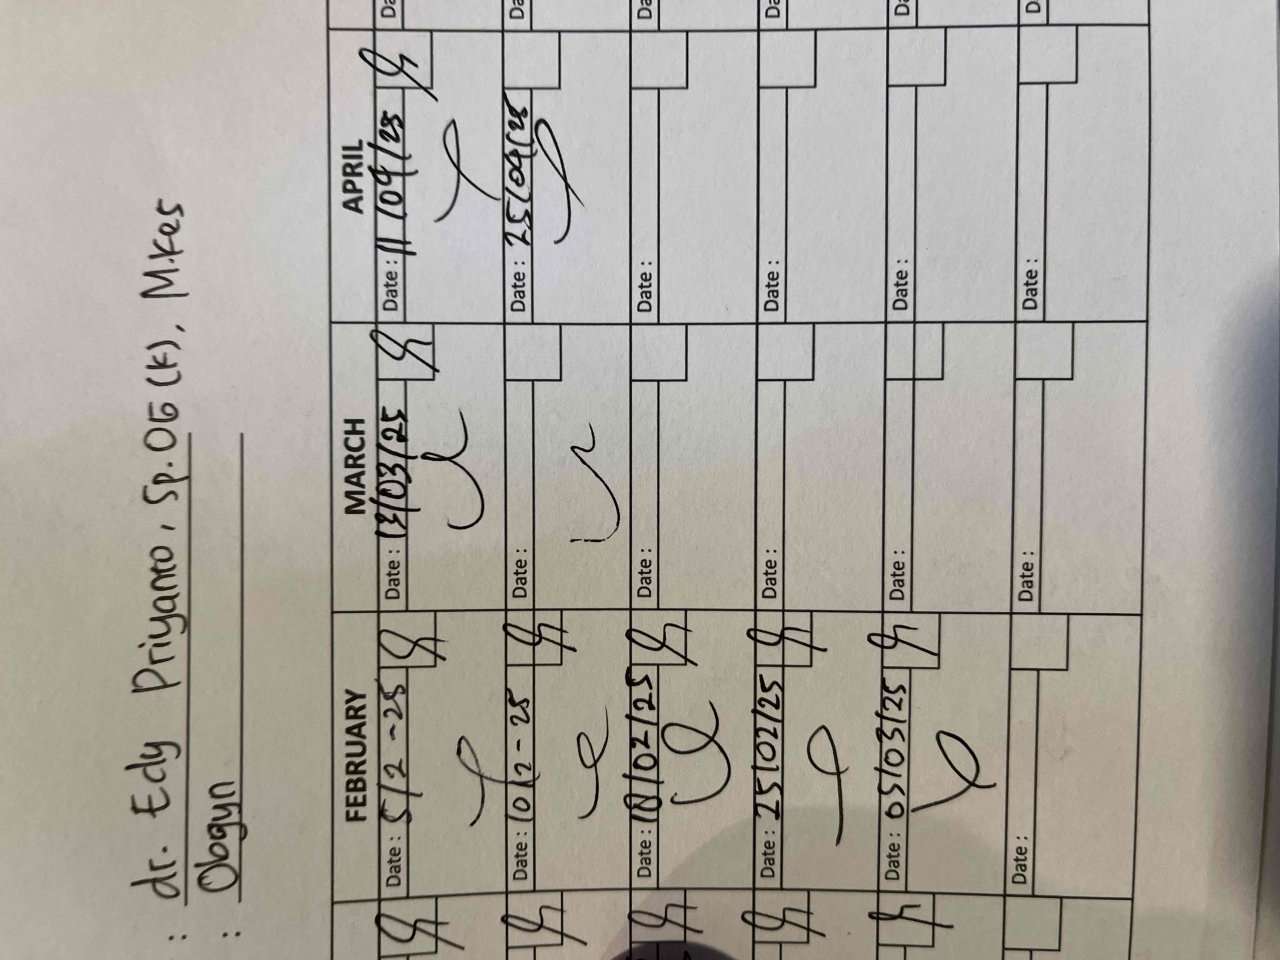 : dr. Edy Priyanto, Sp.OG (K), M.Kes
: Obgyn
FEBRUARY MARCH APRIL
Date : 5/2-25 Date : 13/03/25 Date : 11/04/25 Da
Date : 10/2-25 Date : Date : 25/04/25 Da
Date : 18/02/25 Date : Date : Da
Date : 25/02/25 Date : Date : Da
Date : 05/03/25 Date : Date : Da
Date : Date : Date : D